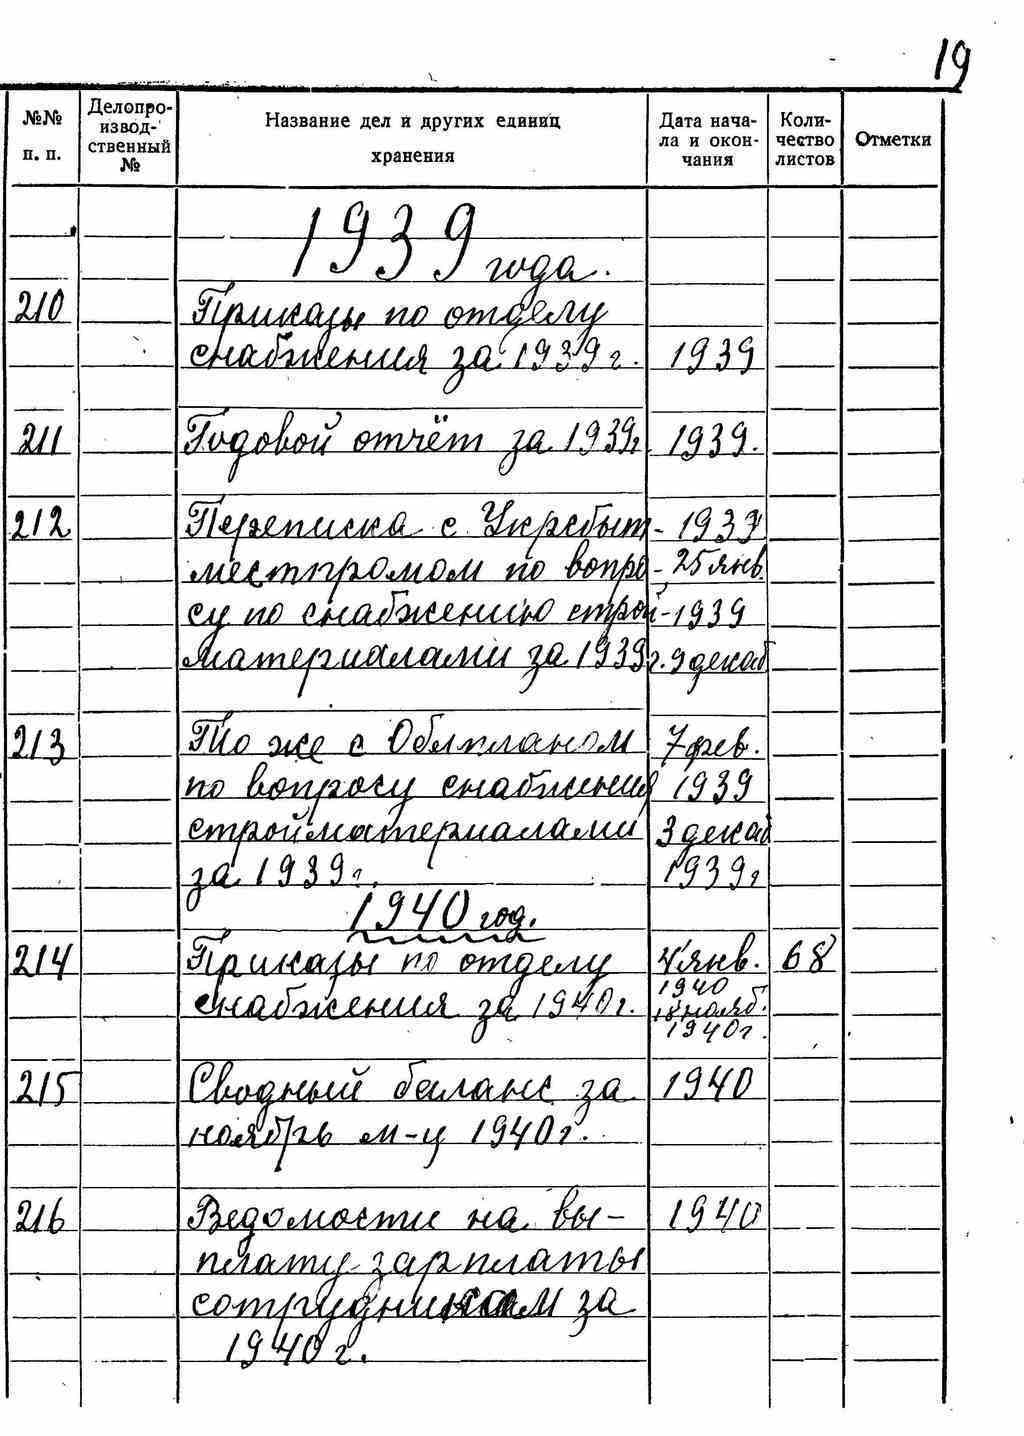 19
№№ п. п. Делопро-извод-ственный № Название дел и других единиц хранения Дата нача-ла и окон-чания Коли-чество листов Отметки
1939
года.
210 Приказы по отделу
снабжения за 1939 г. 1939
211 Годовой отчёт за 1939г. 1939.
212 Переписка с Укрсбыт- 1939
местпромом по вопро- 25 янв.
су по снабжению строй- 1939
материалами за 1939г. 9 декаб
213 То же с Облпланом 7 фев.
по вопросу снабжения 1939
стройматериалами 3 декаб
за 1939г. 1939г
1940 год.
214 Приказы по отделу 4 янв. 68
1940
снабжения за 1940г. 18 нояб.
1940г.
215 Сводный баланс за 1940
ноябрь м-ц 1940г.
216 Ведомости на вы- 1940
плату зарплаты
сотрудникам за
1940г.